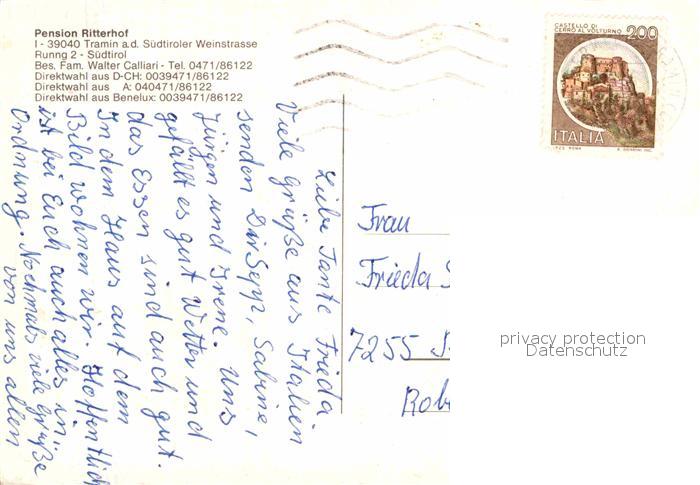 Pension Ritterhof
I - 39040 Tramin a.d. Südtiroler Weinstrasse
Rungg 2 - Südtirol
Bes. Fam. Walter Calliari - Tel. 0471/86122
Direktwahl aus D-CH: 0039471/86122
Direktwahl aus A: 040471/86122
Direktwahl aus Benelux: 0039471/86122
CASTELLO DI
CERRO AL VOLTURNO
200
ITALIA
Liebe Tante Frieda
Viele Grüße aus Italien
senden Dir Sepp, Sabine,
Jürgen und Irene. Uns
gefällt es gut Wetter und
das Essen sind auch gut.
In dem Haus auf dem
Bild wohnen wir. Hoffentlich
ist bei Euch auch alles in
Ordnung. Nochmals viele Grüße
von uns allen
Frau
Frieda
7255
privacy protection
Datenschutz